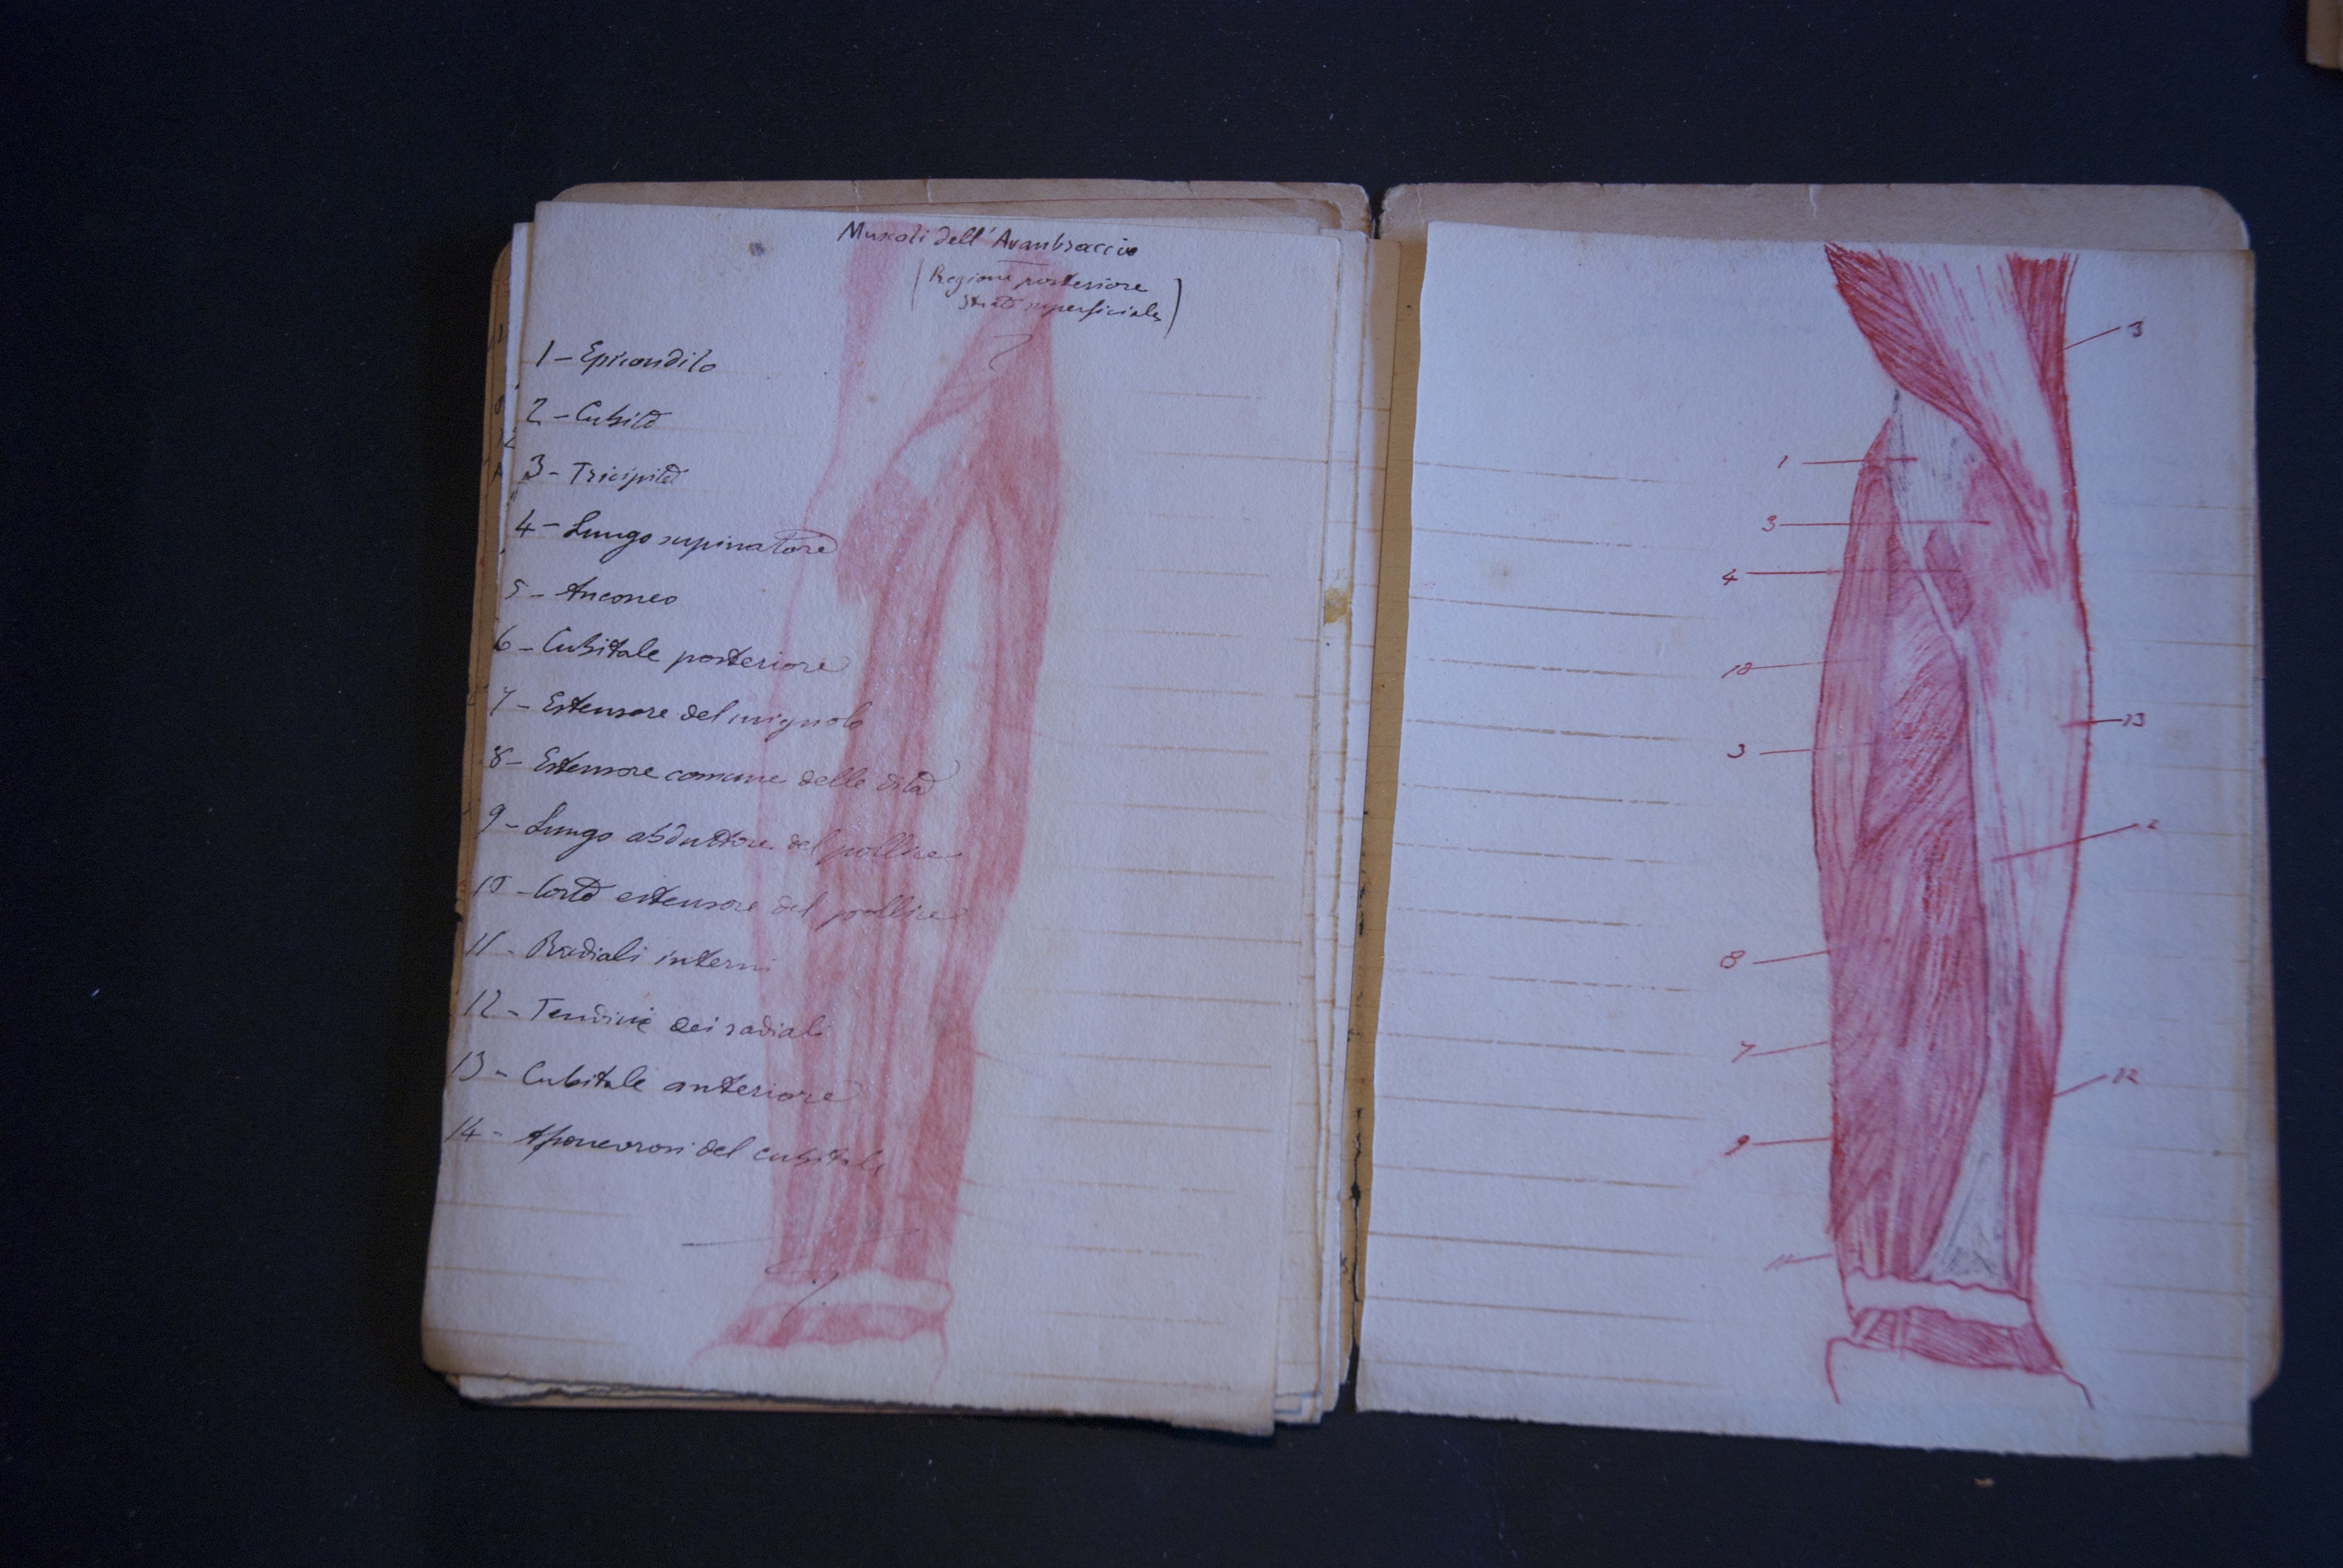 Muscoli dell'Avanbraccio
(Regione posteriore
Strato superficiale)
1 - Epicondilo
2 - Cubito
3 - Tricipite
4 - Lungo supinatore
5 - Anconeo
6 - Cubitale posteriore
7 - Estensore del mignolo
8 - Estensore comune delle dita
9 - Lungo abduttore del pollice
10 - Corto estensore del pollice
11 - Radiali interni
12 - Tendini dei radiali
13 - Cubitale anteriore
14 - Aponevrosi del cubitale
3
1
3
4
10
13
3
2
8
7
12
9